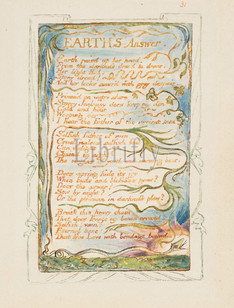 EARTH'S Answer
Earth rais'd up her head,
From the darkness dread & drear.
Her light fled:
Stony dread!
And her locks cover'd with grey
Prison'd on watry shore
Starry Jealousy does keep my den
Cold and hoar
Weeping
I hear the father of the ancient men
Selfish father of men
Cruel jealous selfish fear
Does spring hide its joy
When buds and blossoms grow?
Does the sower
Sow by night?
Or the plowman in darkness plow?
Break this heavy chain,
That does freeze my bones around
Selfish! vain!
Eternal bane!
That free Love with bondage bound.